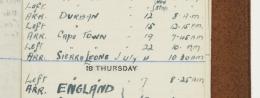 Left
ARR. DURBAN " 12 8 A.M.
Left " 15 12-15 P.M.
ARR. CAPE TOWN " 19 7-45 AM
Left " " 22 10- AM
ARR. SIERRA LEONE July 4 10-30 AM
18 THURSDAY
Left " 7 8-25 AM
ARR. ENGLAND